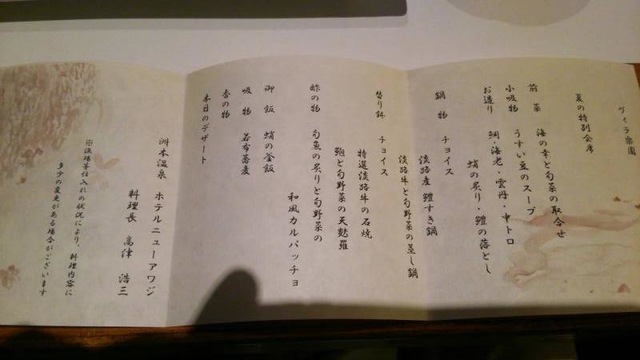 ヴィラ楽園
夏の特別会席
前菜 海の幸と旬菜の取合せ
小吸物 うすい豆のスープ
お造り 鯛・海老・雲丹・中トロ
蛸の炙り・鱧の落とし
鍋物 チョイス
淡路産 鱧すき鍋
淡路牛と旬野菜の蒸し鍋
替り鉢 チョイス
特選淡路牛の石焼
鮑と旬野菜の天麩羅
酢の物 旬魚の炙りと旬野菜の
和風カルパッチョ
御飯 蛸の釜飯
吸物 若布蕎麦
香の物
本日のデザート
洲本温泉 ホテルニューアワジ
料理長 高津 浩三
※漁場等仕入れの状況により、料理内容に
多少の変更がある場合がございます